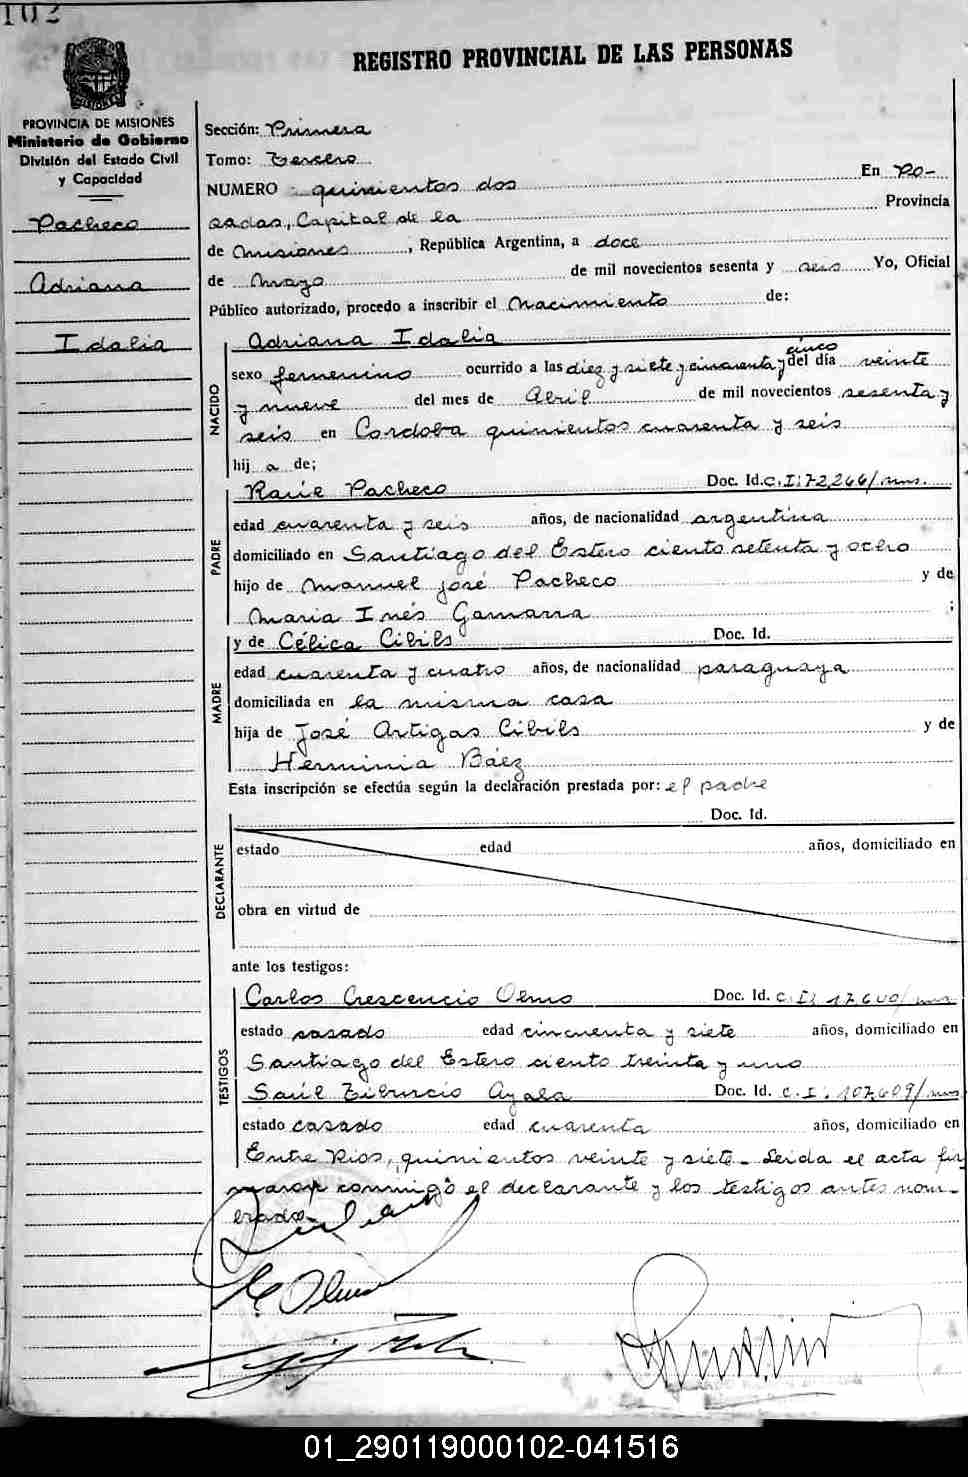 102
REGISTRO PROVINCIAL DE LAS PERSONAS
PROVINCIA DE MISIONES
Ministerio de Gobierno
División del Estado Civil
y Capacidad
Pacheco
Adriana
Idalia
Sección: Primera
Tomo: Tercero
NUMERO quinientos dos En Po-
sadas, Capital de la Provincia
de Misiones, República Argentina, a doce
de Mayo de mil novecientos sesenta y seis Yo, Oficial
Público autorizado, procedo a inscribir el Nacimiento de:
NACIDO
Adriana Idalia
cinco
sexo femenino ocurrido a las diez y siete y cincuenta y del día veinte
y nueve del mes de Abril de mil novecientos sesenta y
seis en Cordoba quinientos cuarenta y seis
hij a de;
PADRE
Raúl Pacheco Doc. Id. C.I: 72,266/mns.
edad cuarenta y seis años, de nacionalidad argentina
domiciliado en Santiago del Estero ciento setenta y ocho
hijo de Manuel José Pacheco y de
Maria Inés Gamarra ;
MADRE
y de Célica Cibils Doc. Id.
edad cuarenta y cuatro años, de nacionalidad paraguaya
domiciliada en la misma casa
hija de José Artigas Cibils y de
Herminia Báez
Esta inscripción se efectúa según la declaración prestada por: el padre
DECLARANTE
Doc. Id.
estado edad años, domiciliado en
obra en virtud de
ante los testigos:
TESTIGOS
Carlos Crescencio Olmo Doc. Id. C.I: 17,600/mns
estado casado edad cincuenta y siete años, domiciliado en
Santiago del Estero ciento treinta y uno
Saúl Tiburcio Ayala Doc. Id. C.I: 107,609/mns
estado casado edad cuarenta años, domiciliado en
Entre Rios, quinientos veinte y siete. Leida el acta fir
maron conmigo el declarante y los testigos antes nom-
brados.
01_290119000102-041516